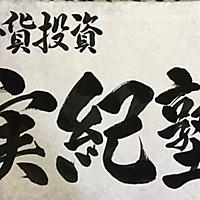 貨投資
実紀塾